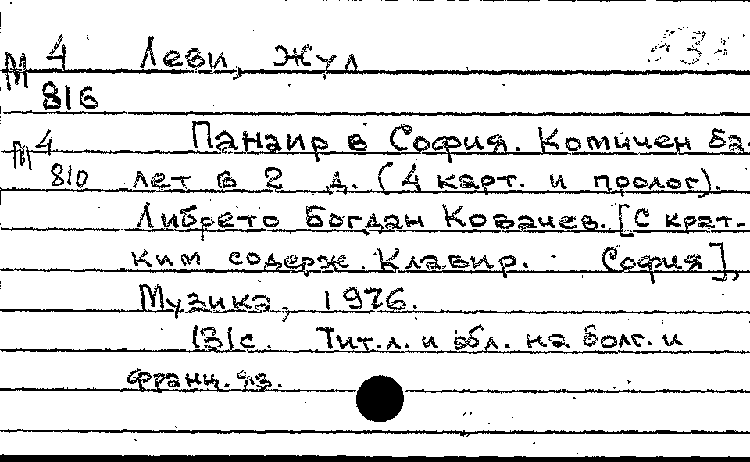 М 4 Леви, Жул
816
М 4 Панаир в София. Комичен ба-
810 лет в 2 д. (4 карт. и пролог).
Либрето Богдан Ковачев. [С крат-
ким содерж. Клавир. София],
Музика, 1976.
131с. Тит.л. и обл. на болг. и
франц. яз.